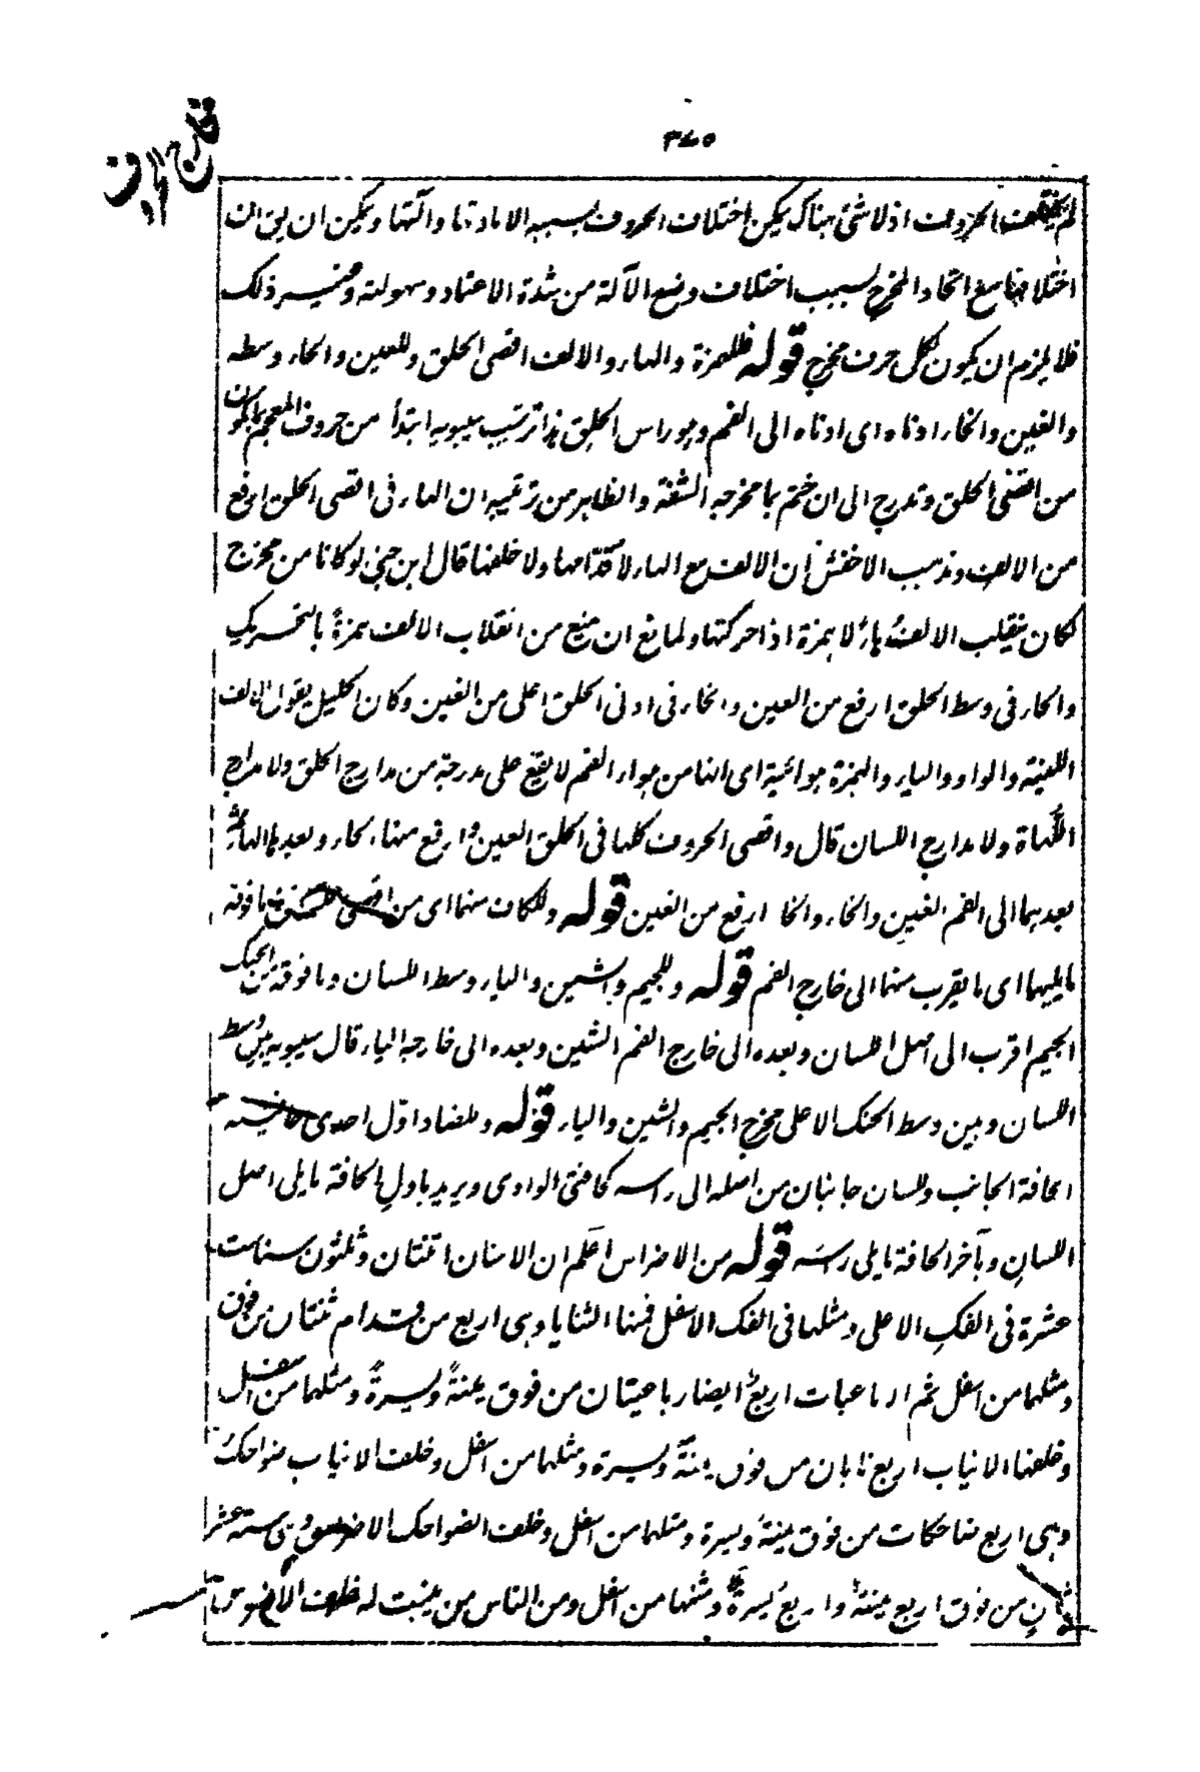 ٣٧٥
مخارج الحروف
لم يختلف الحروف اذ لا شئ هناك يمكن اختلاف الحروف بسببه الا مادتها وآلتها ويمكن ان يق ان
اختلافها مع اتحاد المخرج بسبب اختلاف وضع الآلة من شدة الاعتماد وسهولته وغير ذلك
فلا يلزم ان يكون لكل حرف مخرج قوله فللهمزة والهاء والالف اقصى الحلق وللعين والحاء وسطه
والغين والخاء ادناه اى ادناه الى الفم وهو راس الحلق هذا ترتيب سيبويه ابتدأ من حروف المعجم بما يكون
من اقصى الحلق وتدرج الى ان ختم بما مخرجه الشفة والظاهر من ترتيبه ان الهاء فى اقصى الحلق ارفع
من الالف ومذهب الاخفش ان الالف مع الهاء لا قدّامها ولا خلفها قال ابن جنى لو كانا من مخرج
لكان ينقلب الالفُ هاءً لا همزة اذا حركتها ولمانع ان يمنع من انقلاب الالف همزةً بالتحريك
والحاء فى وسط الحلق ارفع من العين والخاء فى ادنى الحلق اعلى من الغين وكان الخليل يقول الالف
اللينة والواو والياء والهمزة هوائية اى انها من هواء الفم لا يقع على مدرجة من مدارج الحلق ولا مدارج
اللَّهاة ولا مدارج اللسان قال واقصى الحروف كلها فى الحلق العين وارفع منها الحاء وبعدها الهاء ثم
بعدهما الى الفم الغين والخاء والخا ارفع من الغين قوله وللكاف منهما اى من اقصى اللسان وما فوقه
ما يليهما اى ما يقرب منهما الى خارج الفم قوله وللجيم والشين والياء وسط اللسان وما فوقه من الحنك
الجيم اقرب الى اصل اللسان وبعده الى خارج الفم الشين وبعده الى خارجه الياء قال سيبويه بين وسط
اللسان وبين وسط الحنك الاعلى مخرج الجيم والشين والياء قوله وللضاد اوّل احدى حافتيه
الحافة الجانب وللسان جانبان من اصله الى راسه كحافتى الوادى ويريد باول الحافة ما يلى اصل
اللسانِ وبآخر الحافة ما يلى رأسَه قوله من الاضراس اعلم ان الاسنان اثنتان وثلثون سنا ست
عشرة فى الفكِ الاعلى ومثلها فى الفك الاسفل فمنها الثنايا وهى اربع من قدام ثنتان من فوق
ومثلهما من اسفل ثم الرباعيات اربعٌ ايضا رباعيتان من فوق يمنةً ويسرةً ومثلهما من اسفل
وخلفها الانياب اربع نابان من فوق يمنةً ويسرة ومثلهما من اسفل وخلف الانياب ضواحكُ
وهى اربع ضاحكات من فوق يمنةً ويسرة ومثلهما من اسفل وخلف الضواحك الاضراس وهى ستة عشر
ثمانٍ من فوق اربع يمنةً واربعٌ يسرةً ومثلها من اسفل ومن الناس من ينبت له خلف الاضراس